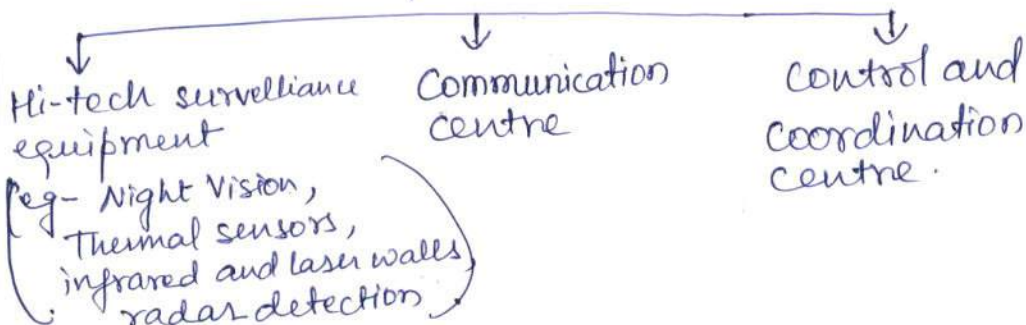 Hi-tech survelliance
equipment
(eg- Night Vision,
Thermal sensors,
infrared and laser walls,
radar detection)
Communication
centre
Control and
coordination
centre.